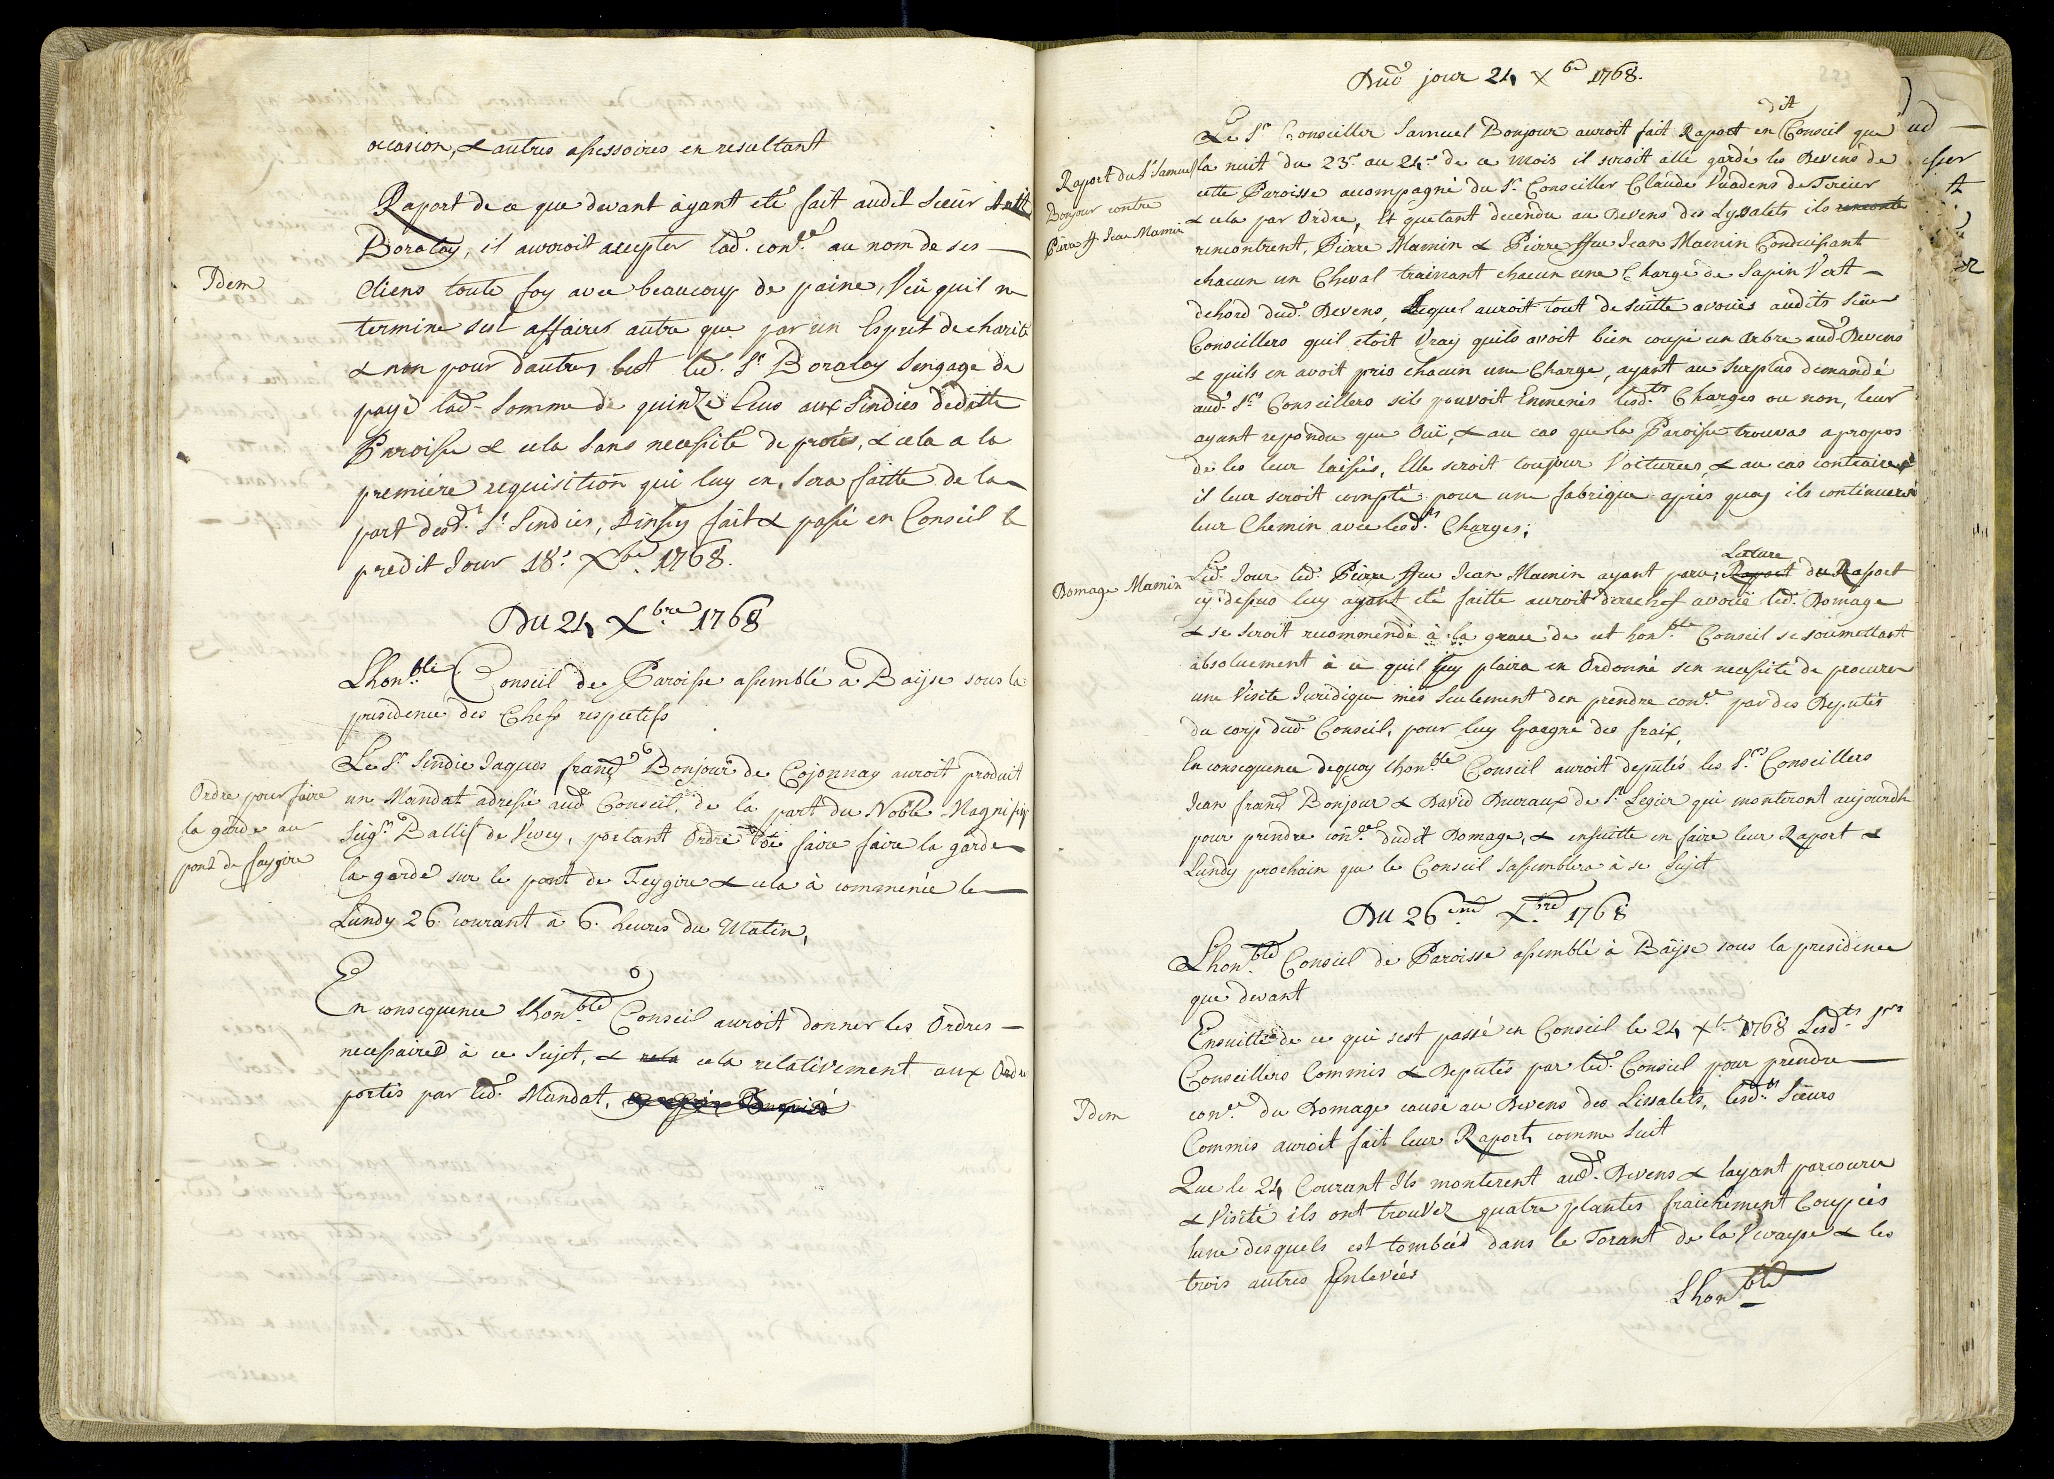 occasion, & autres assessoires en resultant
Raport de ce que devant àyant eté fait audit Sieur
Boralay, il auroit accepter lad. con.ce au nom de ses
Idem
Cliens toute foy avec beaucoup de paine, Veü quil ne
termine ses affaires autre que par un Esprit de charité
& non pour dautres but led. Sr. Boralay Sengage de
payé lad. Somme de quinze Ecus aux Sindics deditte
Paroisse & cela Sans necessité de procès, & cela a la
premiére requisition qui luy en Sera faitte de la
part desd.ts Srs Sindics, Ainsy fait & passé en Conseil le
predit Jour 18e Xbre 1768.
Du 24 Xbre 1768
Lhon.ble Conseil de Paroisse assemblé à Baÿse sous la
presidence des Chefs respectifs
Le Sr Sindic Jaques franç.s Bonjour de Cojonnay auroit produit
Ordre pour faire
la garde au
pont de faygire
un Mandat adressé aud. Conseil de la part du Noble Magnifiq
Seig.r Ballif de Vevey, portant Ordre faire faire la garde
la garde sur le pont de Feygire & cela à commencé le
Lundy 26. courant à 6. heures du Matin,
En consequence Lhon.ble Conseil auroit donner les Ordres
necessaires à ce Sujet, & cela relativement aux Ordre
portés par led. Mandat,
Dud. jour 24 Xbre 1768.
223
Le Sr Conseiller Samuel Bonjour auroit fait Raport en dit Conseil que
Raport du Sr Samuel
Bonjour contre
Pierre ff Jean Mamin
la nuit du 23e au 24e de ce mois il seroit allé gardé les Devens de
cette Paroisse accompagné du Sr Conseiller Claude Vuadens de
& cela par Ordre, Et quetant decendu au Devens des Lyssalets ils
rencontrent, Pierre Mamin & Pierre ffeu Jean Mamin Conduissant
chacun un Cheval trainant chacun une Charge de Sapin Vert
dehord dud. Devens, Lequel auroit tout de suitte avoués audits Sieur
Conseillers quil etoit Vray quils avoit bien coupé un Arbre aud. Devens
& quils en avoit pris chacun une Charge, ayant au Surplus demandé
aud. Srs Conseillers sils pouvoit Enmenés lesd.ts Charges ou non, leur
ayant repondu que Oüi, & au cas que la Paroisse trouvas apropos
de les leur laissés, Elle seroit toujour Voitures, & au cas contraire
il leur seroit compté pour une fabrique après quoy ils continuerent
leur Chemin avec lesd.ts Charges;
Domage Mamin
Led. Jour led. Pierre ffeu Jean Mamin ayant paru, Lecture du Raport
cy dessus luy ayant eté faitte auroit derechef avoüé led. Domage
& se seroit recommendé à la grace de cet hon.ble Conseil se soumettant
absoluement à ce quil luy plaira en Ordonné sen necessité de procurer
une Visite Juridique mes seulement den prendre con.ce par des Deputés
du corp dud. Conseil, pour luy Epargné des fraix,
En consequence dequoy Lhon.ble Conseil auroit deputés les Srs Conseillers
Jean franç. Bonjour & David Ducraux de St Legier qui monteront aujourdh
pour prendre con.ce dudit Domage, & ensuitte en faire leur Raport &
Lundy prochain que le Conseil sassemblera à se Sujet
Du 26eme Xbre 1768
Lhon.ble Conseil de Paroisse assemblé à Baÿse sous la presidence
que devant
Ensuitte de ce qui sest passé en Conseil le 24 Xbre 1768 Lesd.ts Srs
Conseillers Commis & Deputés par led. Conseil pour prendre
Idem
con.ce du Domage causé au Devens des Lissalets, lesd.ts Sieurs
Commis auroit fait leur Raport comme Suit
Que le 24 Courant Ils monterent aud. Devens & layant parcouru
& Visité ils ont trouvez quatre plantes fraichement Coupées
lune desquels est tombées dans le Torant de la Vevayse & les
trois autres Enlevées
Lhon.ble